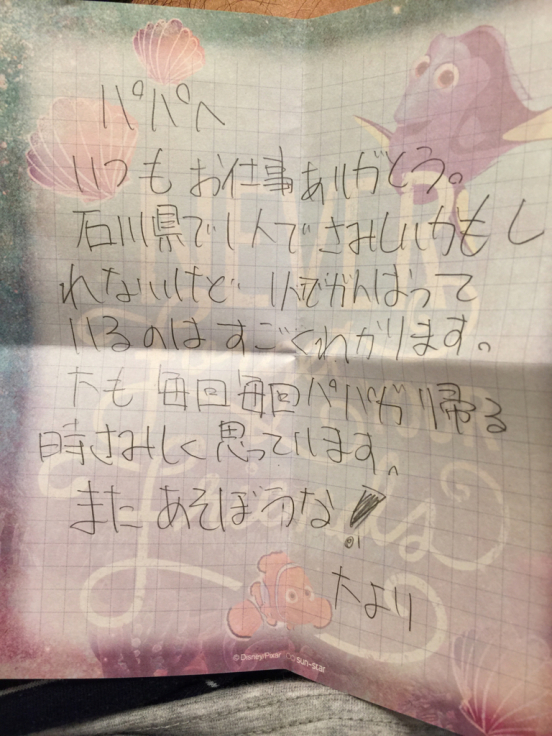 パパへ
いつもお仕事ありがとう。
石川県で1人でさみしいかもし
れないけど 1人でがんばって
いるのはすごくわかります。
も 毎回毎回パパが帰る
時さみしく思っています。
またあそぼうな!
より
© Disney/Pixar sun-star